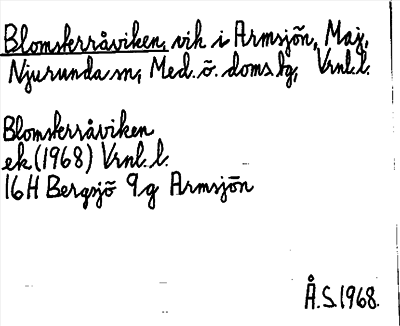 Blomskerråviken, vik i Armsjön, Maj,
Njurunda sn, Med. ö. doms bg, Vrnl. l.
Blomskerråviken
ek (1968) Vrnl. l.
16H Bergsjö 9g Armsjön
Å.S. 1968.